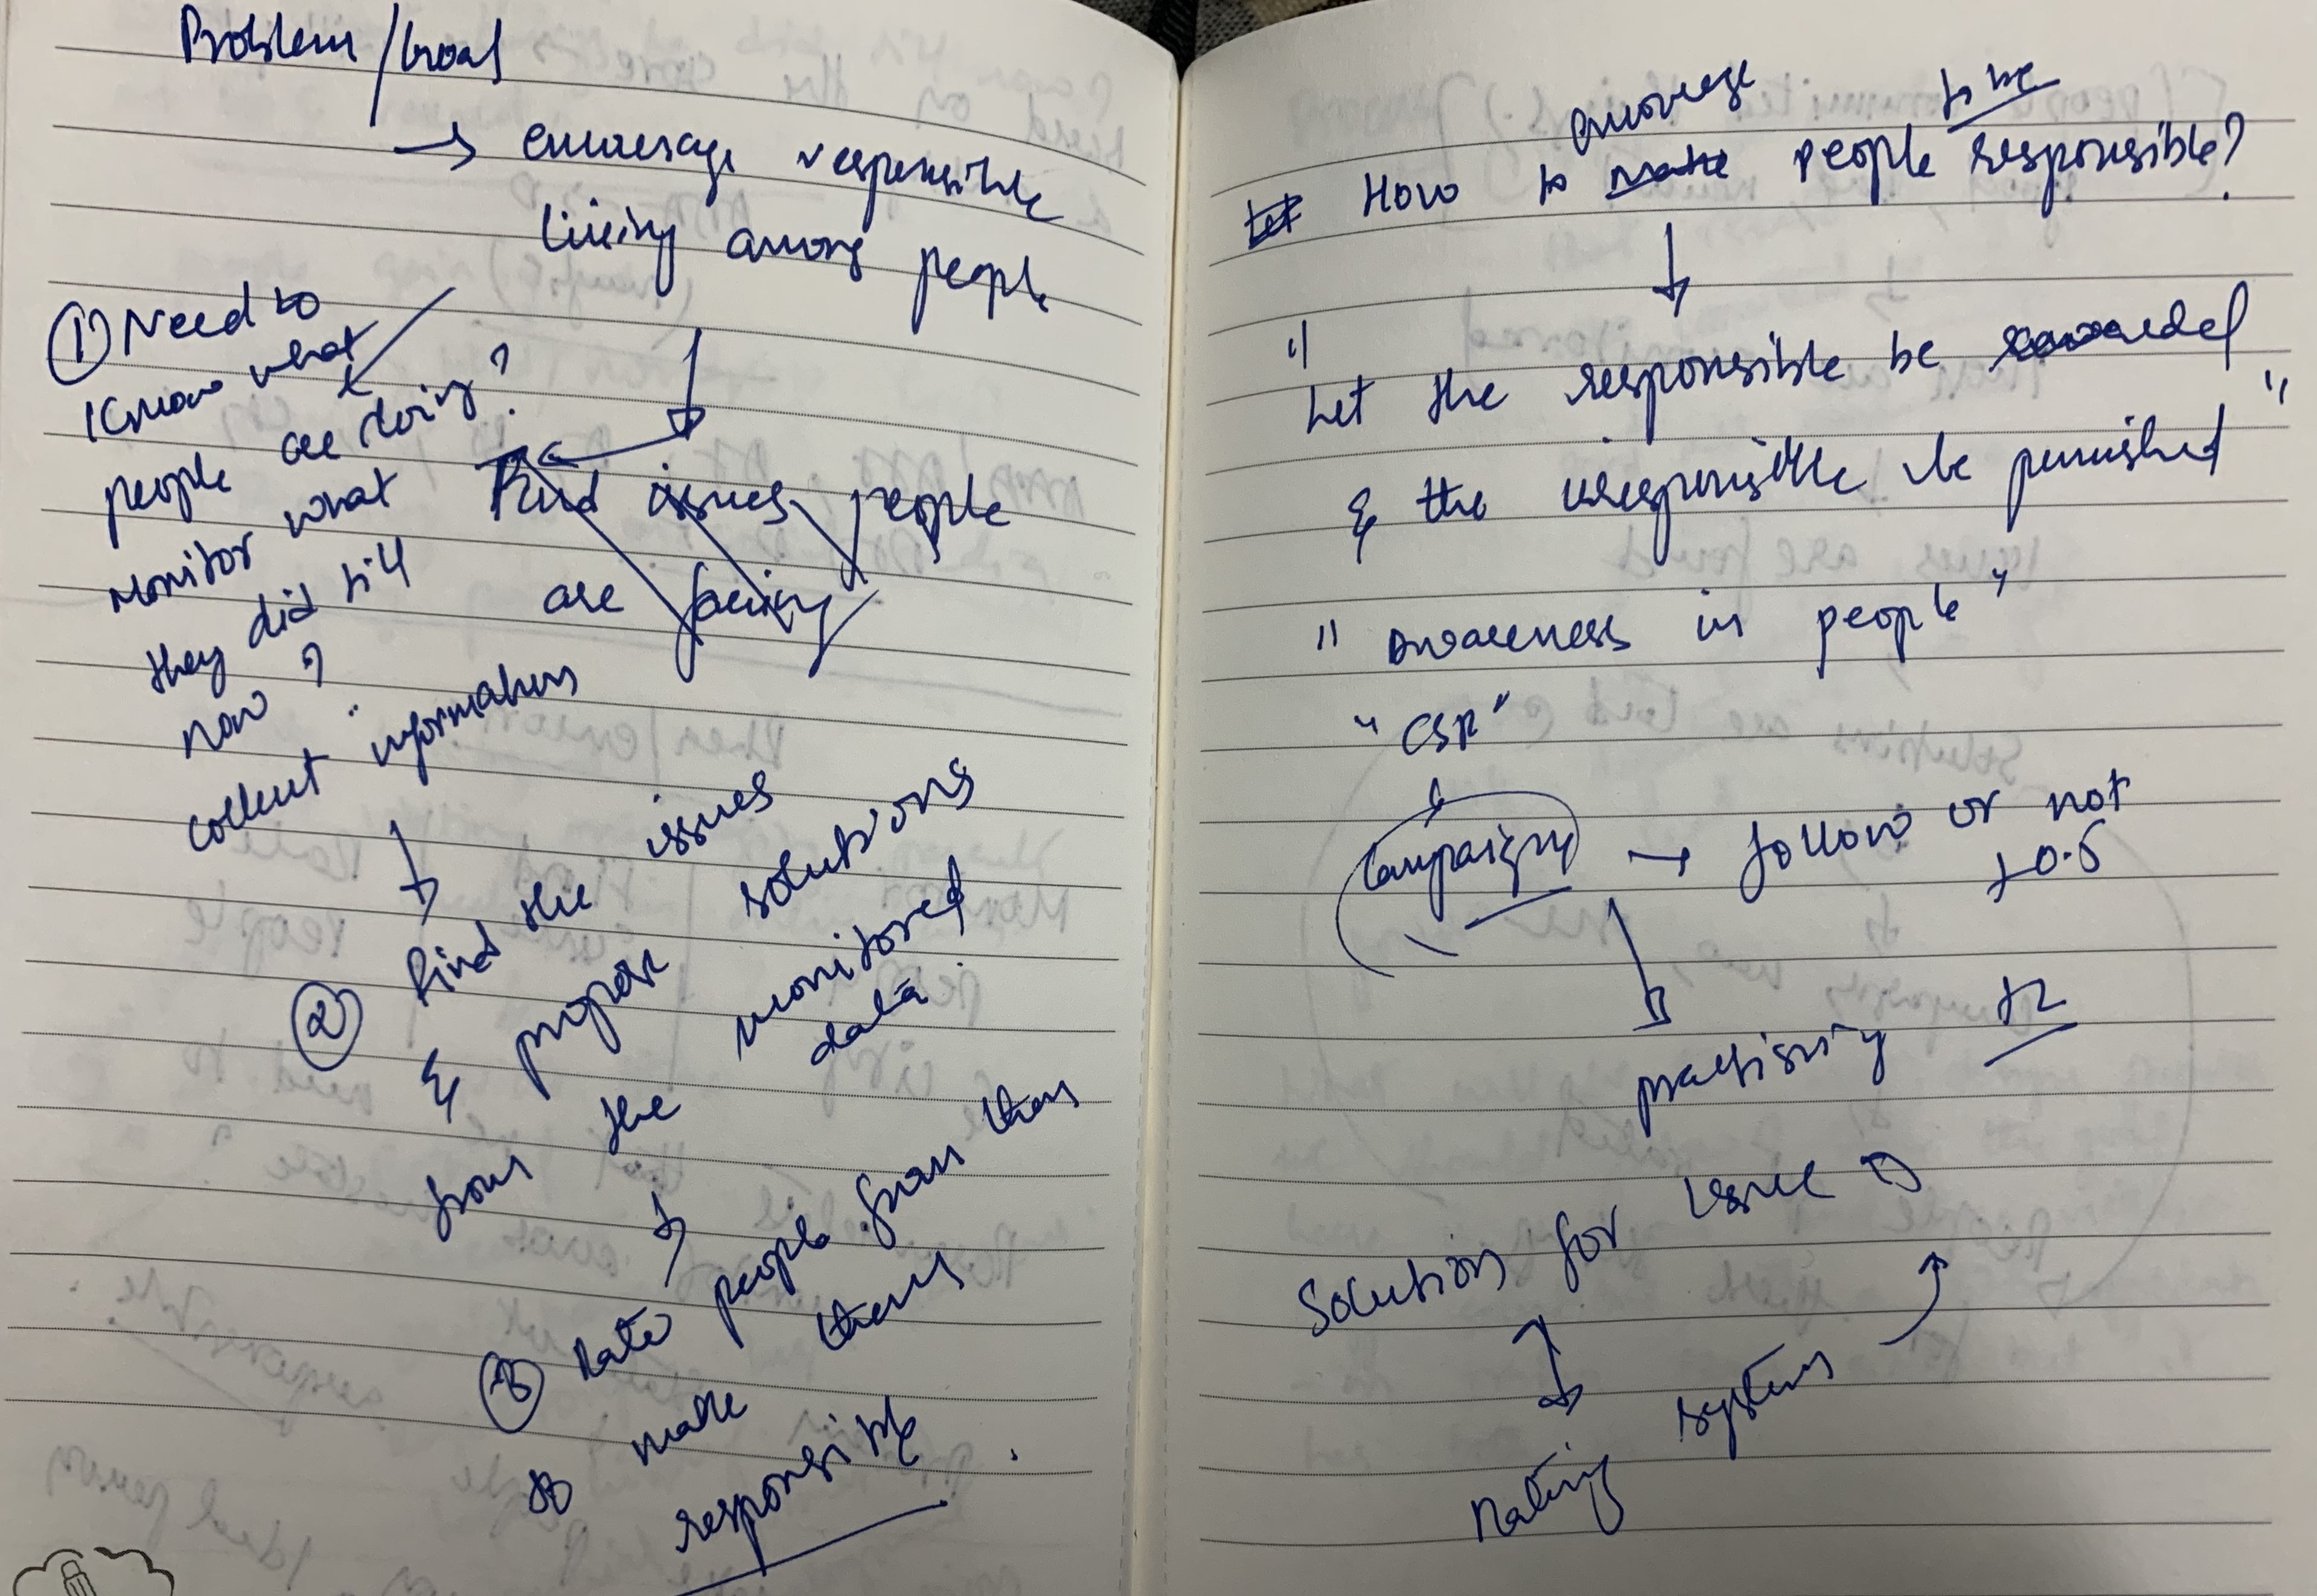 Problem/Goal
→ encourage responsible
living among people
① Need to
know what
people are doing?
Monitor what
they did till
now?
collect information
Find issues people
are facing
② find the issues
& propose solutions
from the monitored
data
③ Rate people from them
to make them
responsible.
encourage to be
Let How to make people responsible?
"Let the responsible be rewarded
& the irresponsible be punished"
"Awareness in people"
"CSR"
Campaigns → follow or not
+0.5
practising +2
Solution for issue
Rating system